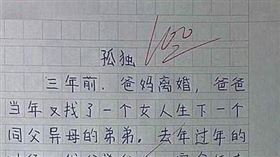 100
孤独
三年前．爸妈离婚，爸爸
当年又找了一个女人生下一个
同父异母的弟弟。去年过年的